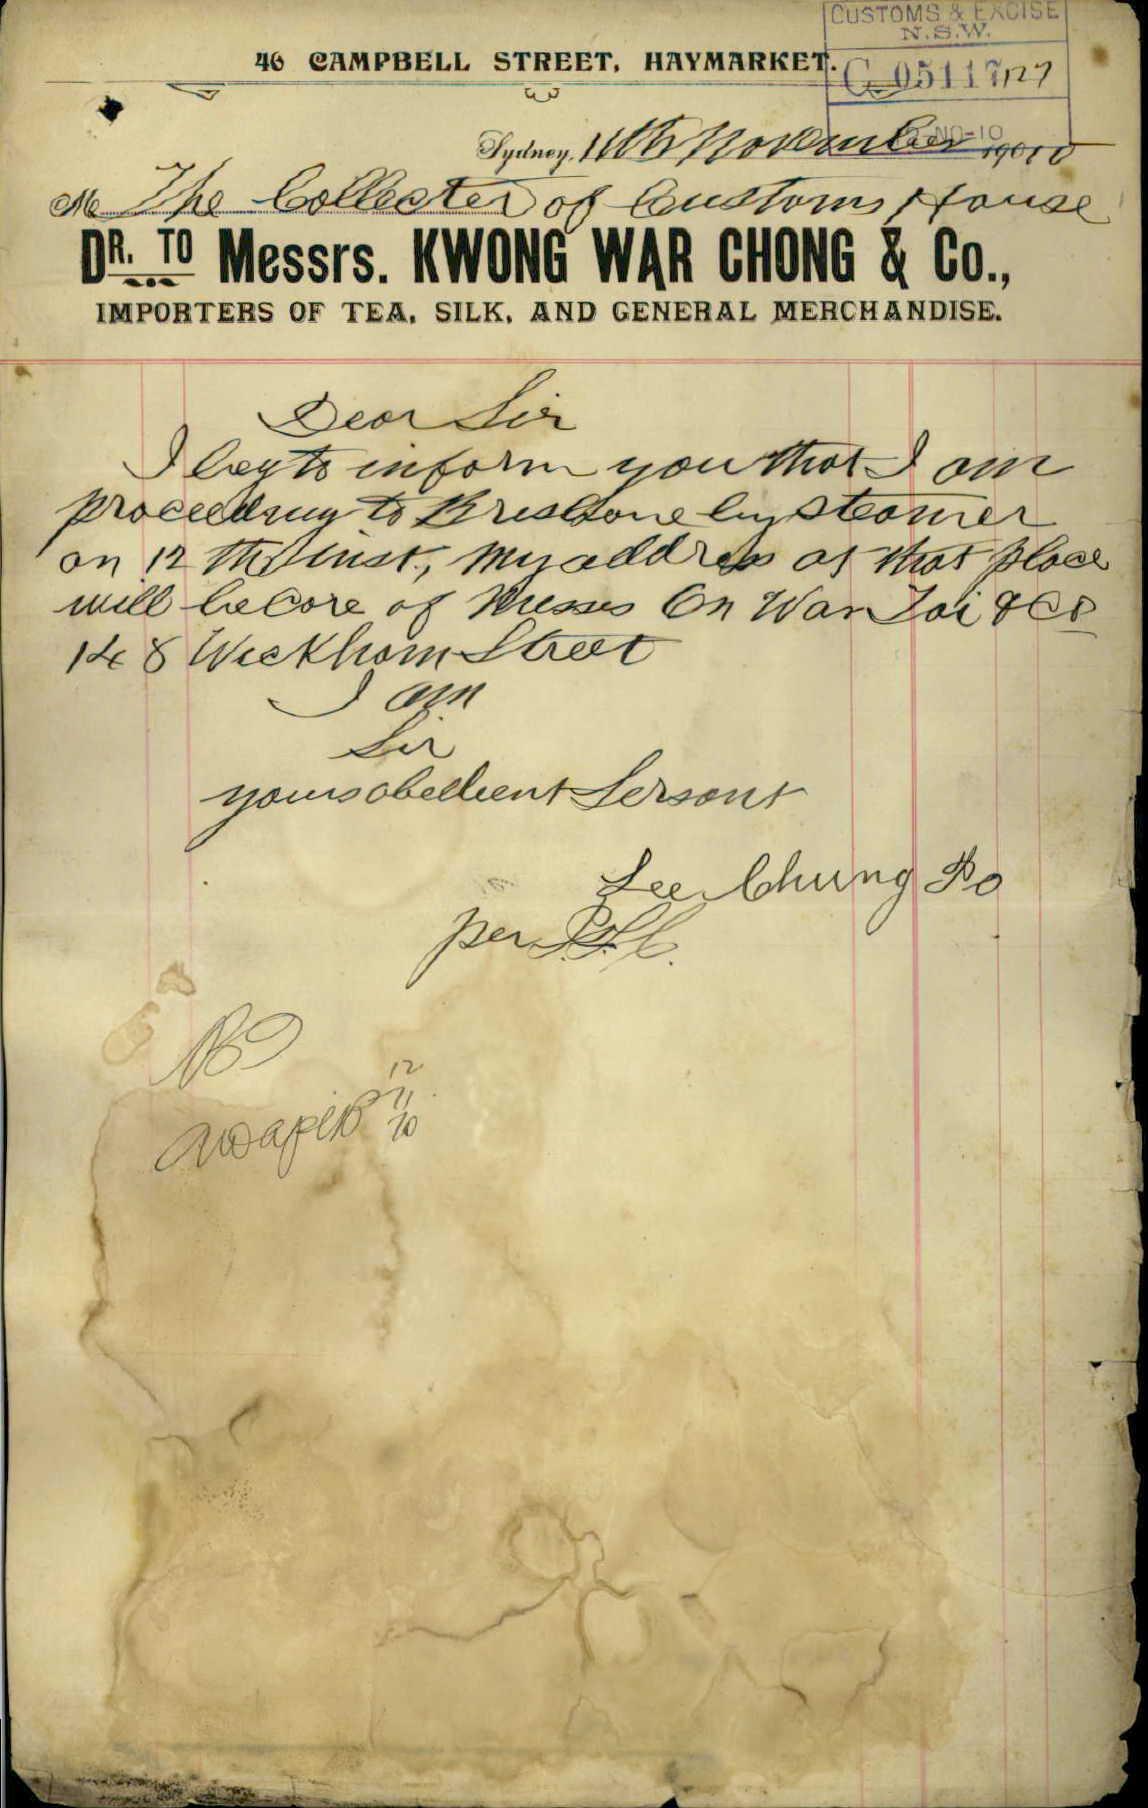 CUSTOMS & EXCISE
N.S.W.
46 CAMPBELL STREET, HAYMARKET.
C 05117
Sydney, 11th November 1910
M The Collecter of Customs House
DR. TO Messrs. KWONG WAR CHONG & Co.,
IMPORTERS OF TEA, SILK, AND GENERAL MERCHANDISE.
Dear Sir
I beg to inform you that I am
proceeding to Brisbane by steamer
on 12 th inst, my address at that place
will be Care of Messrs On War Tai & Co
148 Wickham Street
I am
Sir
yours obedient Servant
Lee Chung Po
per
12
11
10